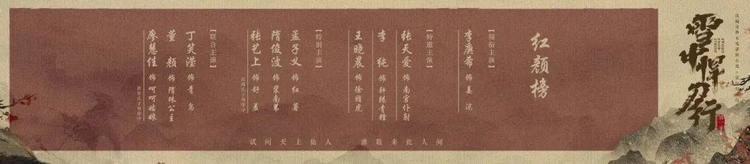 雪中悍刀行
红颜榜
【领衔主演】
李庚希 饰 姜泥
【特邀主演】
张天爱 饰 南宫仆射
李纯 饰 轩辕青锋
王晓晨 饰 徐脂虎
【特别主演】
孟子义 饰 红薯
隋俊波 饰 裴南苇
张艺上 饰 舒羞
【联合主演】
丁笑滢 饰 青鸟
董颜 饰 隋珠公主
廖慧佳 饰 呵呵姑娘
试问天上仙人 谁敢来此人间